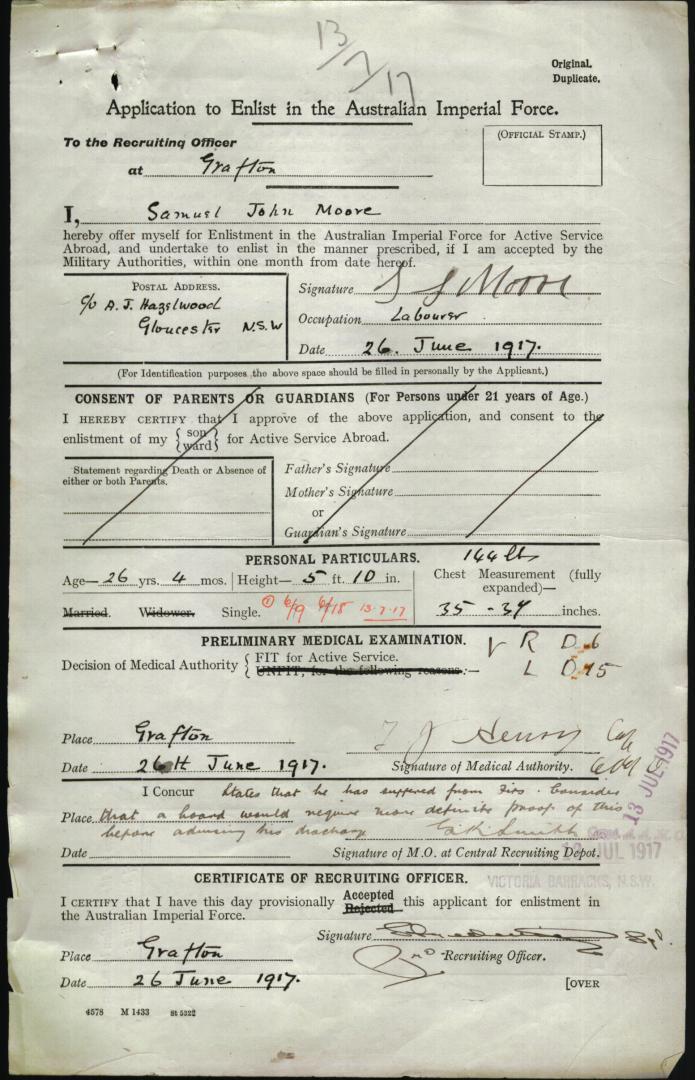 13/7/17
Original.
Duplicate.
Application to Enlist in the Australian Imperial Force.
To the Recruiting Officer
at Grafton
(OFFICIAL STAMP.)
I, Samuel John Moore
hereby offer myself for Enlistment in the Australian Imperial Force for Active Service
Abroad, and undertake to enlist in the manner prescribed, if I am accepted by the
Military Authorities, within one month from date hereof.
POSTAL ADDRESS.
c/o A. J. Hazelwood
Gloucester N.S.W
Signature S J Moore
Occupation Labourer
Date 26. June 1917.
(For Identification purposes the above space should be filled in personally by the Applicant.)
CONSENT OF PARENTS OR GUARDIANS (For Persons under 21 years of Age.)
I HEREBY CERTIFY that I approve of the above application, and consent to the
enlistment of my { son ward } for Active Service Abroad.
Statement regarding Death or Absence of
either or both Parents.
Father's Signature
Mother's Signature
or
Guardian's Signature
PERSONAL PARTICULARS. 144 lbs
Age—26 yrs. 4 mos. Height—5 ft. 10 in.
Chest Measurement (fully
expanded)—
35 - 37 inches.
Married. Widower. Single. 6/9 6/18 13-7-17
PRELIMINARY MEDICAL EXAMINATION.
V R D 6
L D 15
Decision of Medical Authority { FIT for Active Service.
UNFIT, for the following reasons:—
Place Grafton
Date 26th June 1917.
Henry Cap
Signature of Medical Authority.
I Concur States that he has suffered from fits. Considers
Place that a board would require more definite proof of this
before advising his discharge Smith
Date
Signature of M.O. at Central Recruiting Depot.
13 JUL 1917
13 JUL 1917
VICTORIA BARRACKS, N.S.W.
CERTIFICATE OF RECRUITING OFFICER.
I CERTIFY that I have this day provisionally Accepted Rejected this applicant for enlistment in
the Australian Imperial Force.
Signature
Place Grafton
Recruiting Officer.
Date 26 June 1917.
[OVER
4578 M 1433 St 5322